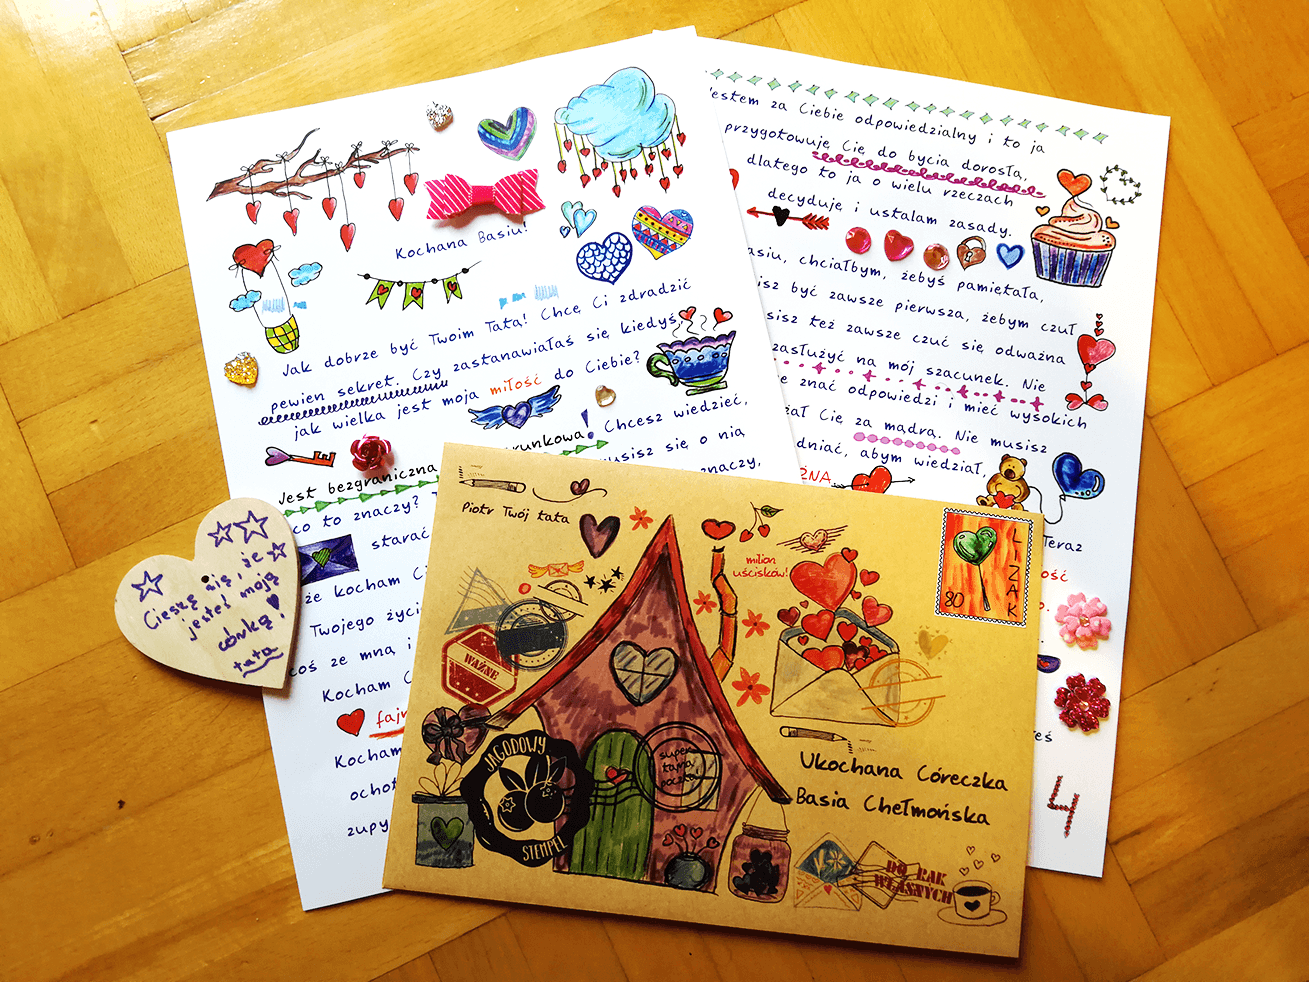 Kochana Basiu!
Jak dobrze być Twoim Tatą! Chcę Ci zdradzić
pewien sekret. Czy zastanawiałaś się kiedyś,
jak wielka jest moja miłość do Ciebie?
Jest bezgraniczna
runkowa! Chcesz wiedzieć,
co to znaczy?
usisz się o nią
znaczy,
starać
że kocham
Twojego życi
coś ze mną i
Kocham
fajn
Kocham
ochot
zupy
jestem za Ciebie odpowiedzialny i to ja
przygotowuję Cię do bycia dorosłą,
dlatego to ja o wielu rzeczach
decyduję i ustalam zasady.
asiu, chciałbym, żebyś pamiętała,
isz być zawsze pierwsza, żebym czuł
sisz też zawsze czuć się odważna
zasłużyć na mój szacunek. Nie
e znać odpowiedzi i mieć wysokich
żał Cię za mądrą. Nie musisz
dniać, abym wiedział,
ŻNA
Teraz
ość
eś
4
Cieszę się, że
jesteś moją
córką!
tata
Piotr Twój tata
milion
uścisków!
LIZAK
80
WAŻNE
JAGODOWY
STEMPEL
super
tajna
poczta
Ukochana Córeczka
Basia Chełmońska
DO RĄK
WŁASNYCH